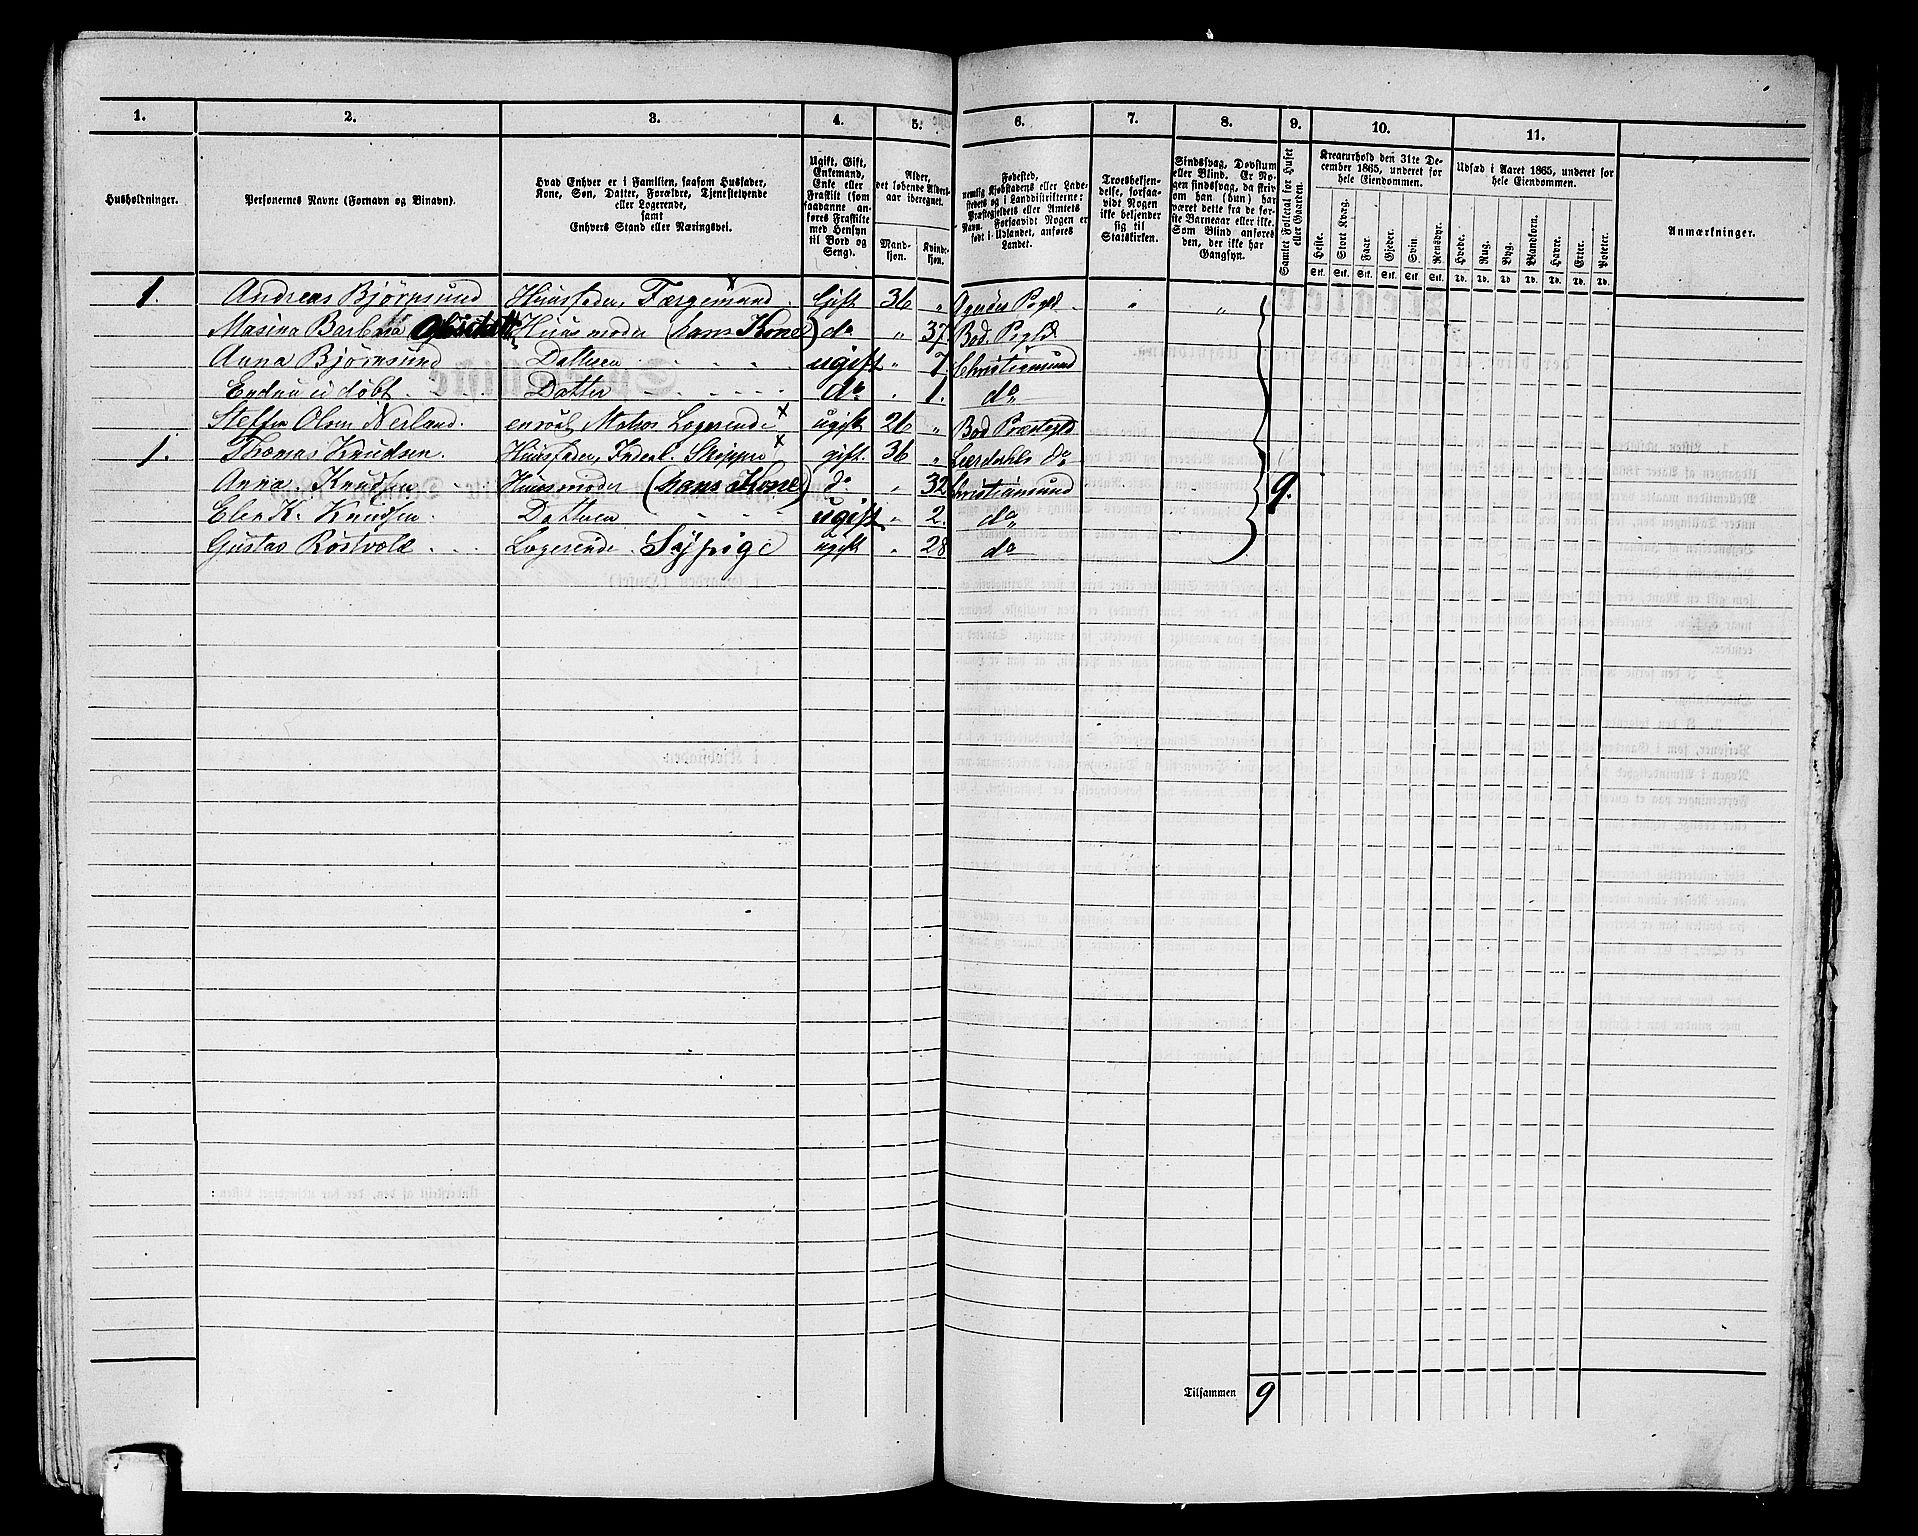 1. 2. 3. 4. 5. 6. 7. 8. 9. 10. 11.
Husholdninger.
Personernes Navne (Fornavn og Binavn).
Hvad Enhver er i Familien, saasom Husfader,
Kone, Søn, Datter, Forældre, Tjenestetyende
eller Logerende,
samt
Enhvers Stand eller Næringsvei.
Ugift, Gift,
Enkemand,
Enke eller
Fraskilt (som
saadanne anføres
Fraskilte
med Hensyn
til Bord og
Seng).
Alder,
det løbende Aldersaar
iberegnet.
Mandkjøn.
Kvindekjøn.
Fødested,
nemlig Kjøbstadens eller Ladestedets
og i Landdistrikterne:
Præstegjeldets eller Amtets
Navn. Forsaavidt Nogen er
født i Udlandet, anføres
Landet.
Troesbekjendelse,
forsaavidt
Nogen
ikke bekjender
sig til
Statskirken.
Sindssvag, Døvstum
eller Blind. Er Nogen
sindssvag, da skrives
om han (hun) har
været dette fra de første
Barneaar eller ikke.
Som Blind anføres
den, der ikke har
Gangsyn.
Samlet Folketal for Huset
eller Gaarden.
Kreaturhold den 31te December
1865, underet for
hele Eiendommen.
Heste. Stort Kvæg. Faar. Gjeder. Svin. Rensdyr.
Stk. Stk. Stk. Stk. Stk. Stk.
Udsæd i Aaret 1865, underet for
hele Eiendommen.
Hvede. Rug. Byg. Blandkorn. Havre. Erter. Poteter.
Td. Td. Td. Td. Td. Td. Td.
Anmærkninger.
1. Andreas Bjørnsund Huusfader, Færgemand Gift 36 " Pgld " "
Masina Barbra Huusmoder (hans Kone) do " 37 Bod. Pgld
Anna Bjørnsund Datter ugift " 7 Christiansund
Endnu ei døbt. Datter do . 1. do
Steffen Olsen Nerland. Logerende x ugift 26 " Bod Præstegld
1. Thomas Knudsen. Huusfader, Skipper x gift. 36 " Lærdahls do
Anna Knudsen Huusmoder (hans Kone) do " 32 Christiansund 9.
Knudsen. Datter ugift " 2. do
Gustav Røstvold Logerende Sypige ugift " 28 do
Tilsammen 9